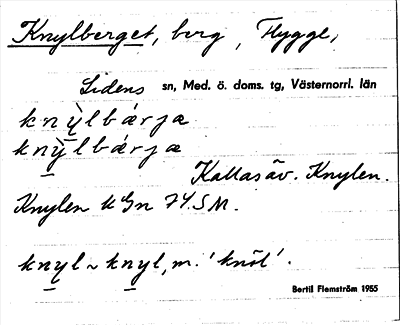 Knylberget, berg, Flygge,
Lidens sn, Med. ö. doms. tg, Västernorrl. län
knỳlbárja
knỳlbárja
Kallas äv. Knylen.
Knylen kGn 74.SM.
knyl ~ knyl, m. 'knöl'.
Bertil Flemström 1955